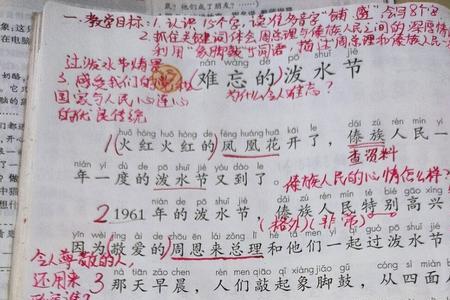 一.教学目标：1.认识15个字，读准多音字"铺、盛"，会写8个字
2.抓住关键词体会周总理与傣族人民之间的深厚情
利用"象脚鼓"等词语，描述周总理和傣族人民一
过泼水节情景
3.感受我们的党和
国家与人民心连心
的优良传统
nán wàng de pō shuǐ jié
难忘的泼水节
为什么令人难忘？
huǒ hóng huǒ hóng de fèng huáng huā kāi le dǎi zú rén mín yì
1火红火红的凤凰花开了，傣族人民一
查资料
nián yí dù de pō shuǐ jié yòu dào le
年一度的泼水节又到了。
傣族人民的心情怎样？
nián de pō shuǐ jié dǎi zú rén mín tè bié gāo xìng
2 1961年的泼水节，傣族人民特别高兴
（格外）（非常）
yīn wèi jìng ài de zhōu ēn lái zǒng lǐ hé tā men yì qǐ guò pō shuǐ jié
因为敬爱的周恩来总理和他们一起过泼水节
令人尊敬的人，
nà tiān zǎo chén rén men qiāo qǐ xiàng jiǎo gǔ cóng sì miàn
还用来
3那天早晨，人们敲起象脚鼓，从四面